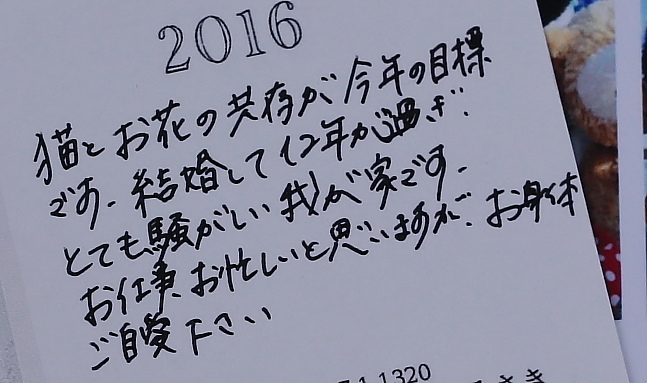 2016
猫とお花の共存が今年の目標
です。結婚して12年が過ぎ、
とても騒がしい我が家です。
お仕事、お忙しいと思いますが、お身体
ご自愛下さい
1320